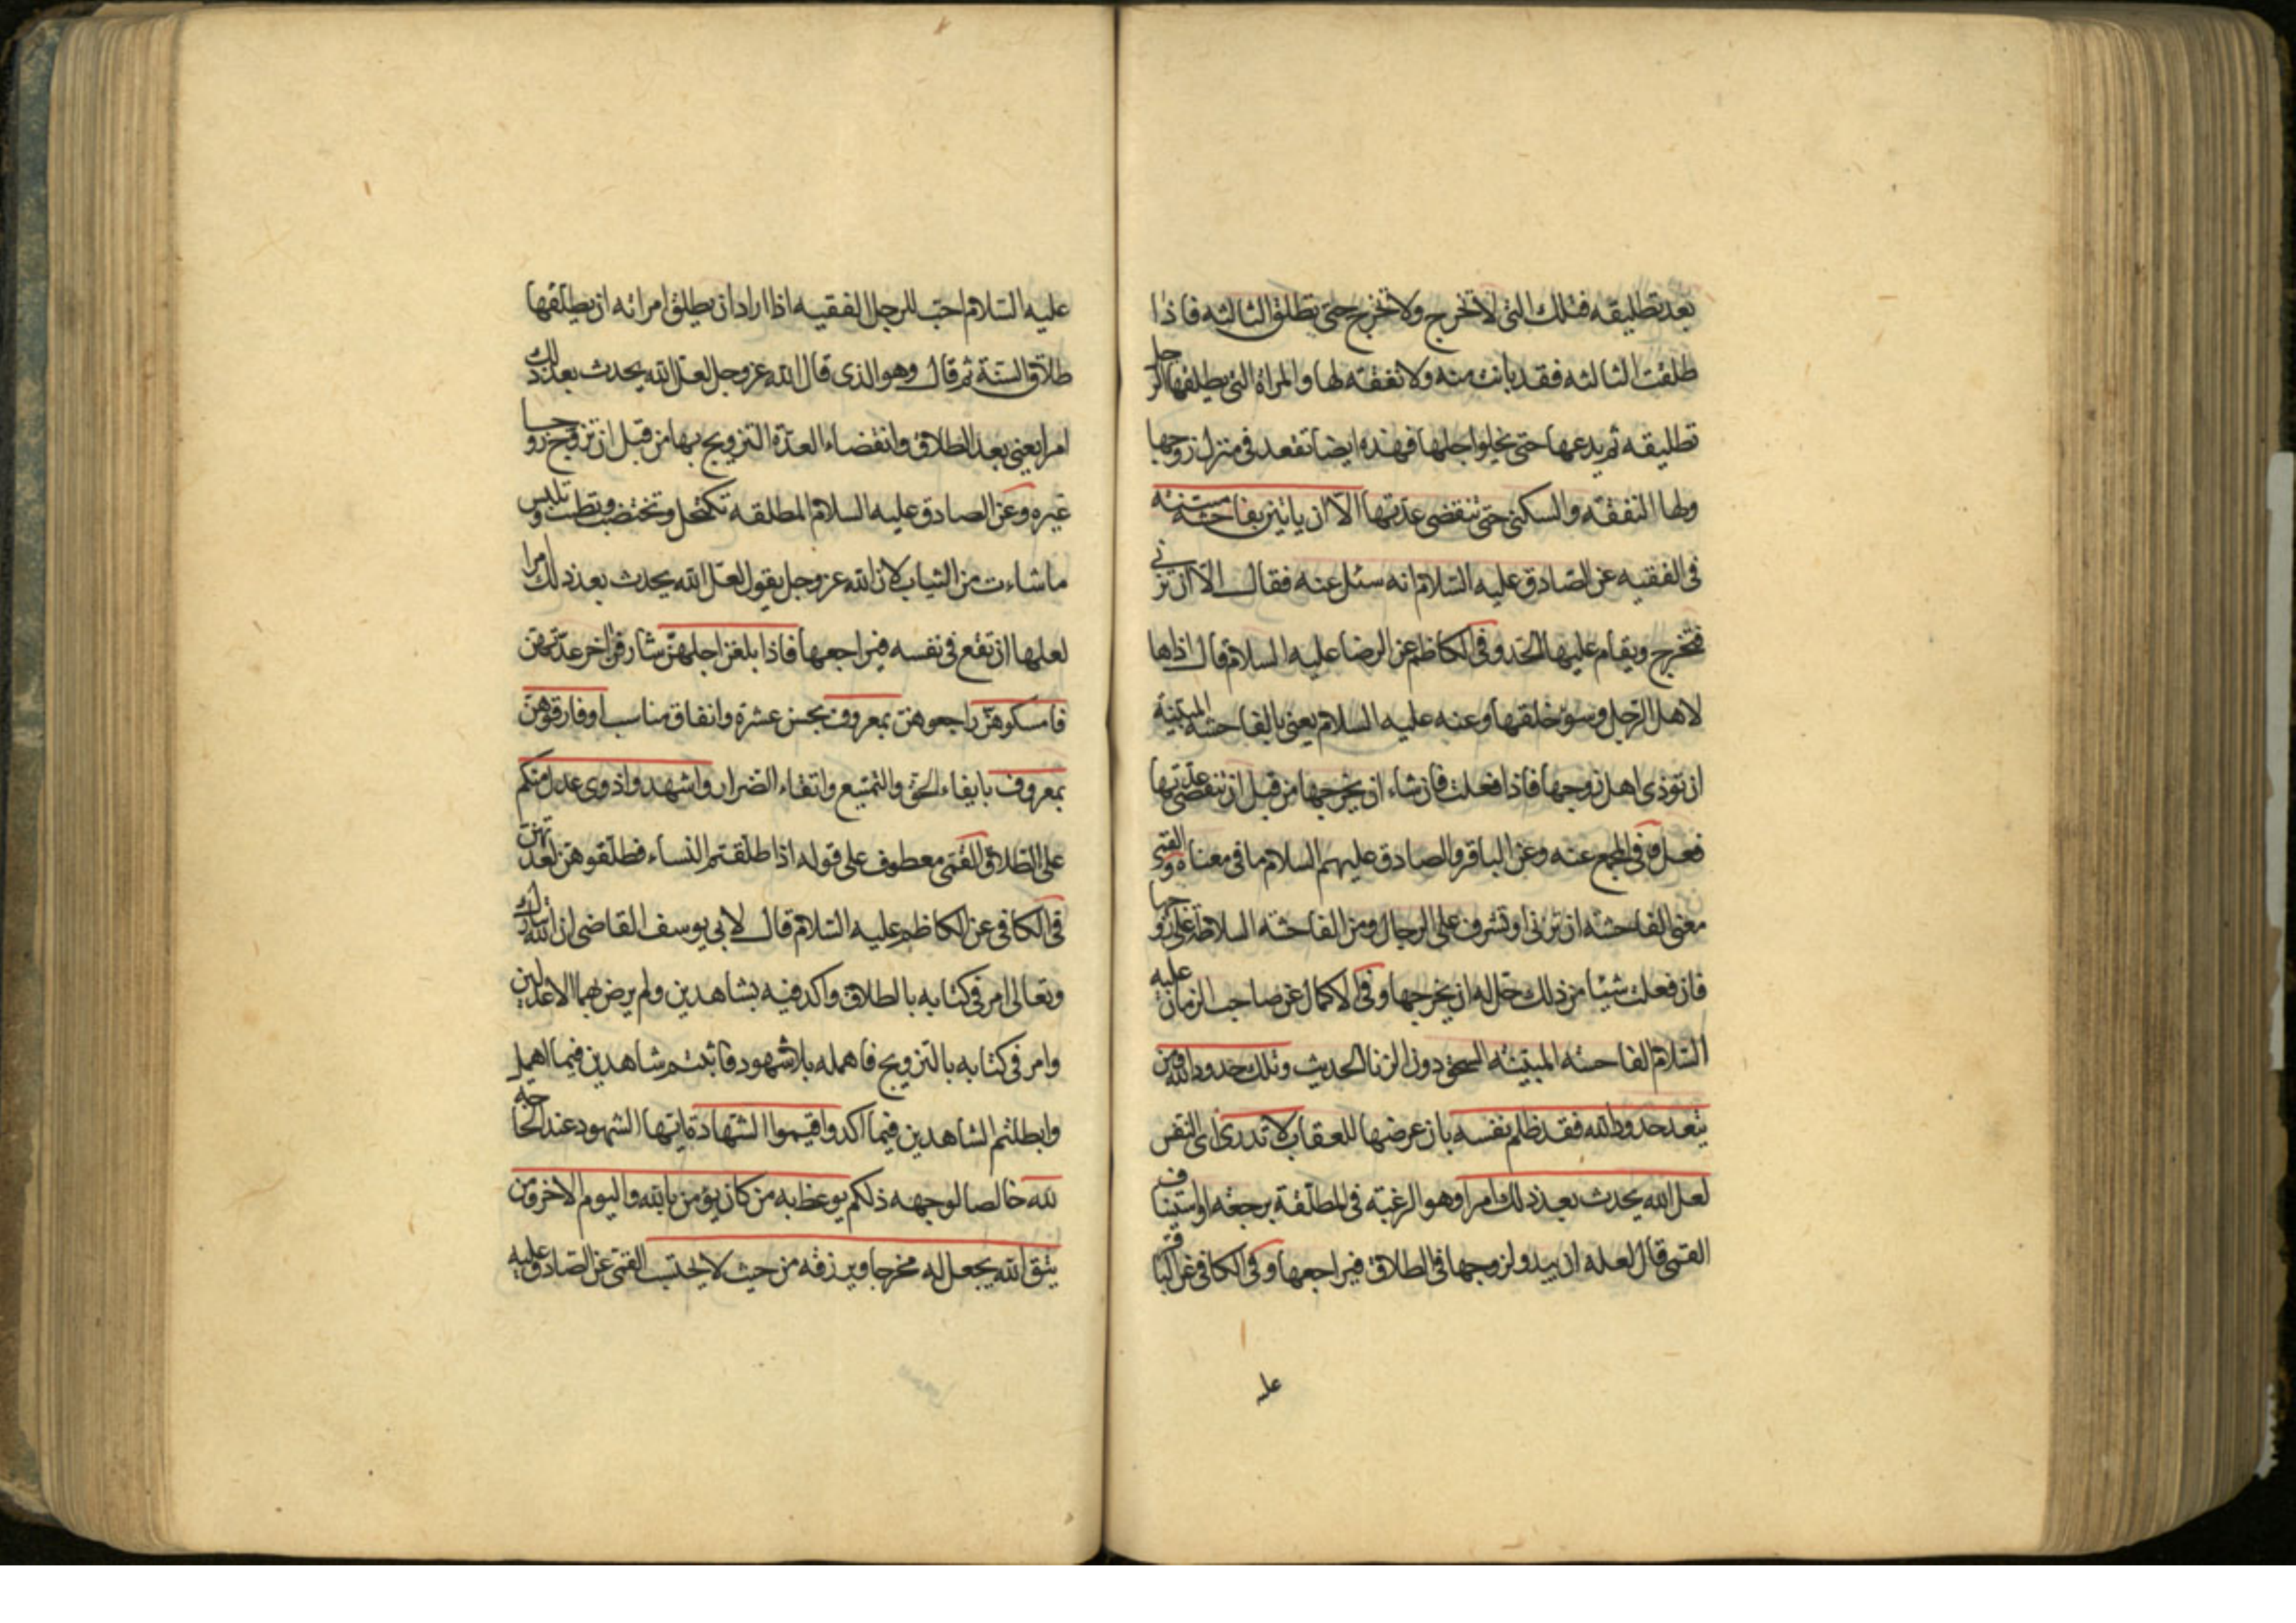 بعد تطليقه فتلك التى لا تخرج ولا تخرج حتى تطلق الثالثه فاذا
طلقت الثالثه فقد بانت منه ولا نفقه لها والمراة التى يطلقها الرجل
تطليقه ثم يدعها حتى يخلوا جلها فهذه ايضا تقعد فى منزل زوجها
ولها النفقه والسكنى حتى تنقضى عدتها الا ان ياتين بفاحشه مبينه
فى الفقيه عن الصادق عليه السلام انه سئل عنه فقال الا ان تزنى
فتخرج ويقام عليها الحد وفى الكافى عن الرضا عليه السلام قال اذاها
لاهل الرجل وسوء خلقها وعنه عليه السلام يعنى بالفاحشه المبينة
ان توذى اهل زوجها فاذا فعلت فان شاء ان يخرجها من قبل ان تنقضى عدتها
فعل وفى المجمع عنه وعن الباقر والصادق عليهم السلام ما فى معناه والقمى
معنى الفاحشه ان تزنى او تشرف على الرجال ومن الفاحشه السلاطة على زوجها
فان فعلت شيئا من ذلك حل له ان يخرجها وفى الاكمال عن صاحب الزمان عليه
السلام الفاحشه المبينه السحق دون الزنا الحديث وتلك حدود الله ومن
يتعد حدود الله فقد ظلم نفسه بان عرضها للعقاب لا تدرى اى النفس
لعل الله يحدث بعد ذلك امرا وهو الرغبه فى المطلقة برجعه او استيناف
القمى قال لعله ان يبدو لزوجها فى الطلاق فيراجعها وفى الكافى عن الباقر
عليه
عليه السلام احب للرجل الفقيه اذا اراد ان يطلق امراته ان يطلقها
طلاق السنة ثم قال وهو الذى قال الله عز وجل لعل الله يحدث بعد ذلك
امرا يعنى بعد الطلاق وانقضاء العدة التزويج بها من قبل ان تزوج زوجا
غيره وعن الصادق عليه السلام المطلقه تكتحل وتختضب وتطيب وتلبس
ما شاءت من الثياب لان الله عز وجل يقول لعل الله يحدث بعد ذلك امرا
لعلها ان تقع فى نفسه فيراجعها فاذا بلغن اجلهن شارفن اخر عدتهن
فامسكوهن راجعوهن بمعروف بحسن عشرة وانفاق مناسب او فارقوهن
بمعروف بايفاء الحق والتمتيع واتقاء الضرار واشهدوا ذوى عدل منكم
على الطلاق القمى معطوف على قوله اذا طلقتم النساء فطلقوهن لعدتهن
فى الكافى عن الكاظم عليه السلام قال لابى يوسف القاضى ان الله تبارك
وتعالى امر فى كتابه بالطلاق واكد فيه بشاهدين ولم يرض بهما الا عدلين
وامر فى كتابه بالتزويج فاهمله بلا شهود فاثبتم شاهدين فيما اهمل
وابطلتم الشاهدين فيما اكد واقيموا الشهادة ايتها الشهود عند الحاجة
لله خالصا لوجهه ذلكم يوعظ به من كان يؤمن بالله واليوم الاخر ومن
يتق الله يجعل له مخرجا ويرزقه من حيث لا يحتسب القمى عن الصادق عليه